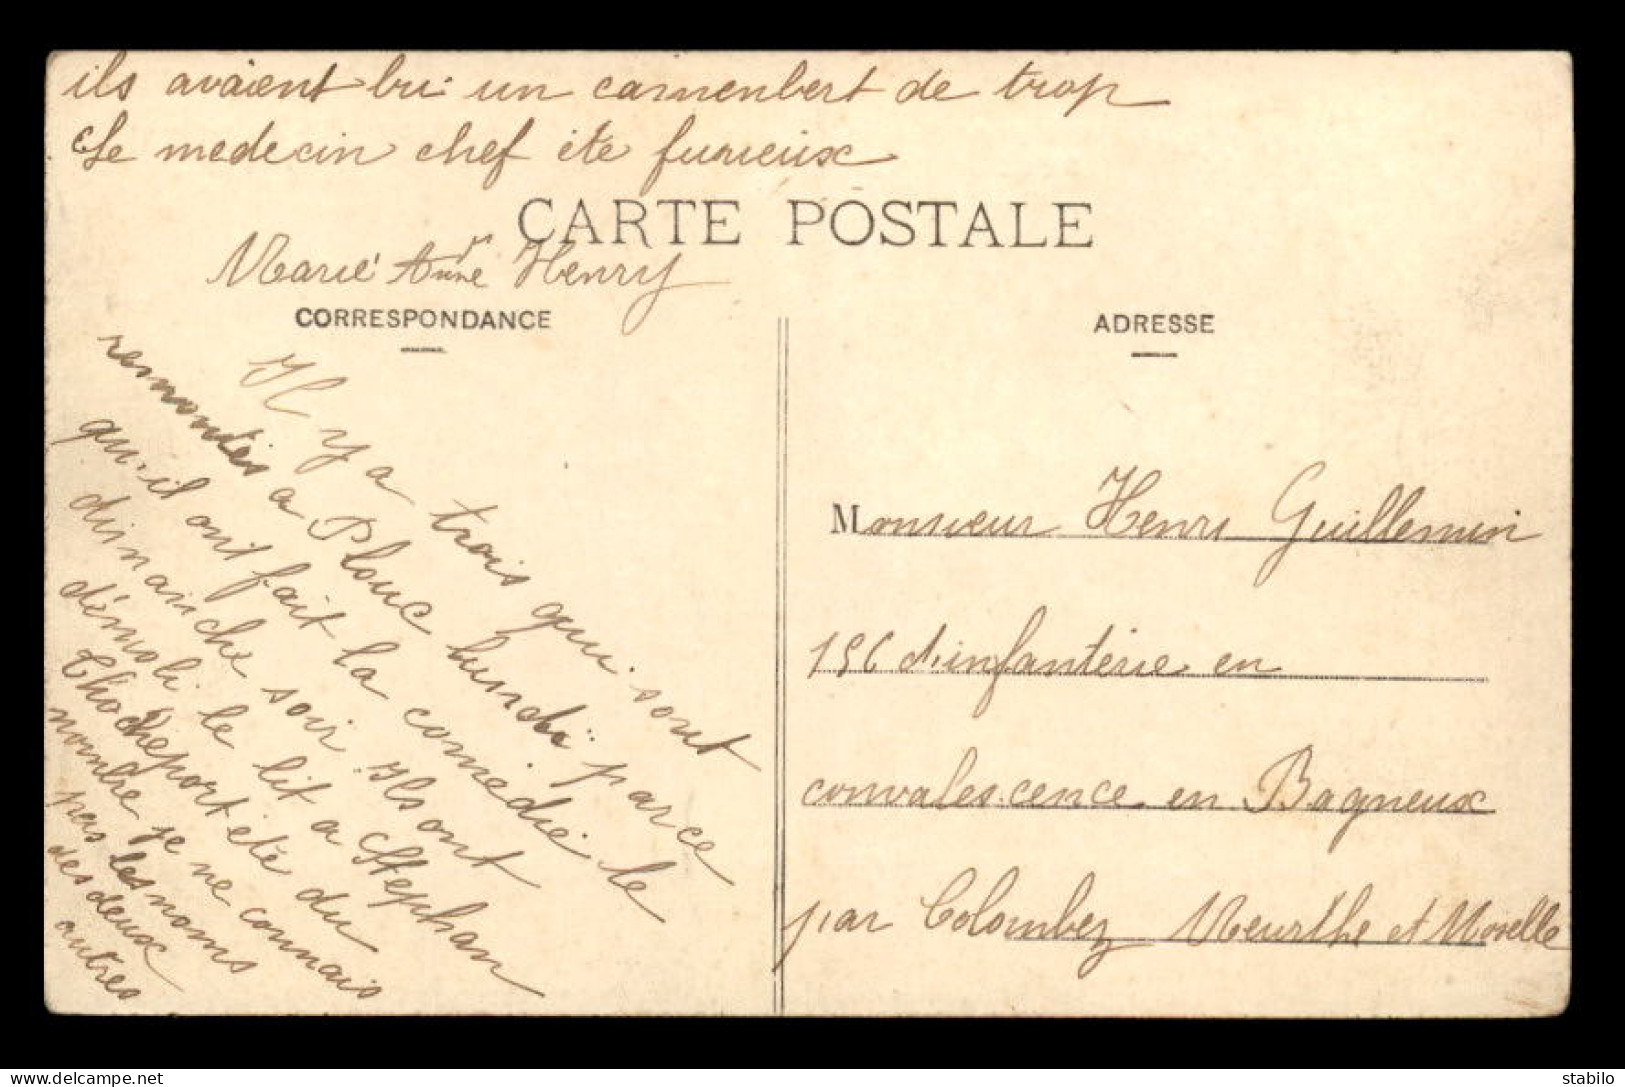 ils avaient bu un camenbert de trop
Le medecin chef été furieux
CARTE POSTALE
Marie Anne Henry
CORRESPONDANCE
ADRESSE
Il y a trois qui sont
remontés a Plouc lundi parce
qu'il ont fait la comédie le
dimanche soir Ils ont
démoli le lit a Stephan
été du
nombre je ne connais
pas les noms
des deux
autres
Monsieur Henri Guillemin
156 d'infanterie en
convalescence en Bagneux
par Colombez Meurthe et Moselle
delcampe.net
stabilo